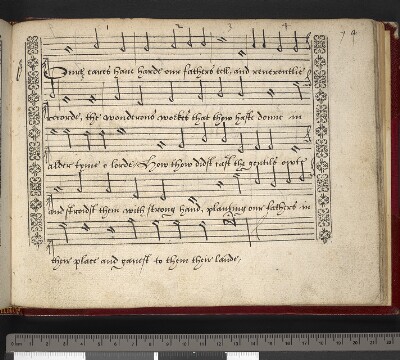 1 2 3 4
74
Our eares have harde our fathers tell, and reverentlie
recorde, the wonderous workes that thow haste donne in
alder tyme o lorde, How thow didst cast the gentils owte
and stroidst them with strong hand, planting our fathers in
their place and gavest to them their lande.